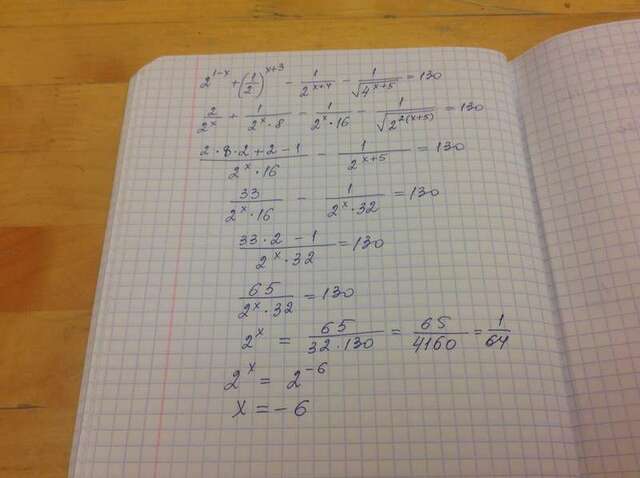 2^{1-x} + (1/2)^{x+3} - 1/2^{x+4} - 1/√(4^{x+5}) = 130
2/2^x + 1/(2^x · 8) - 1/(2^x · 16) - 1/√(2^{2(x+5)}) = 130
(2 · 8 · 2 + 2 - 1)/(2^x · 16) - 1/2^{x+5} = 130
33/(2^x · 16) - 1/(2^x · 32) = 130
(33 · 2 - 1)/(2^x · 32) = 130
65/(2^x · 32) = 130
2^x = 65/(32 · 130) = 65/4160 = 1/64
2^x = 2^{-6}
x = -6